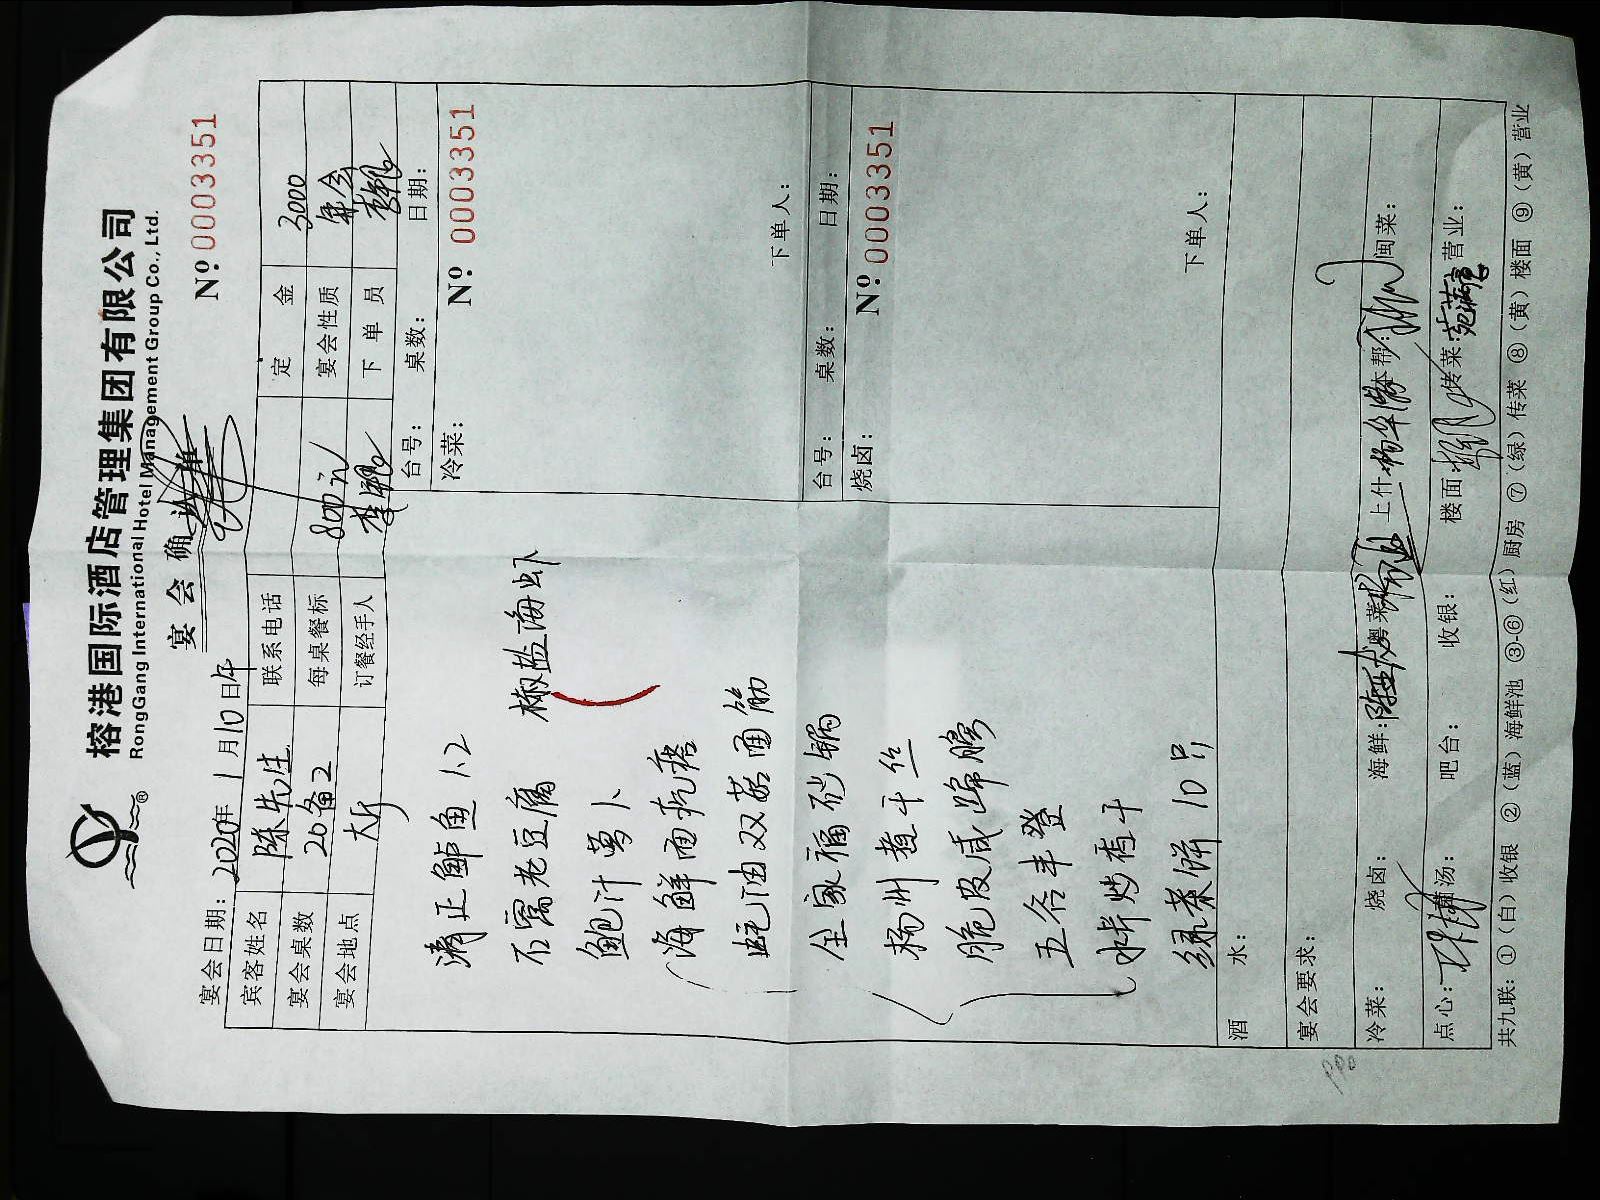 榕港国际酒店管理集团有限公司
RongGang International Hotel Management Group Co., Ltd.
宴会确
Nº 0003351
宴会日期：2020年1月10日午
宾客姓名 陈先生 联系电话 定金 3000
宴会桌数 20备2 每桌餐标 800元 宴会性质 年会
宴会地点 大厅 订餐经手人 李鹏 下单员 李鹏
台号： 桌数： 日期：
冷菜： Nº 0003351
清正鲈鱼1.2
石窝老豆腐 椒盐海虾
鲍汁萝卜
海鲜面疙瘩
蚝油双菇面筋
下单人：
台号： 桌数： 日期：
烧卤： Nº 0003351
全家福砂锅
扬州煮干丝
脆皮咸蹄膀
五谷丰登
水芹炒香干
绿茶饼10只
下单人：
酒水：
宴会要求：
冷菜： 烧卤： 海鲜： 粤菜： 上什： 本帮： 闽菜：
点心： 汤： 吧台： 收银： 楼面： 传菜： 营业：
共九联：①（白）收银 ②（蓝）海鲜池 ③-⑥（红）厨房 ⑦（绿）传菜 ⑧（黄）楼面 ⑨（黄）营业